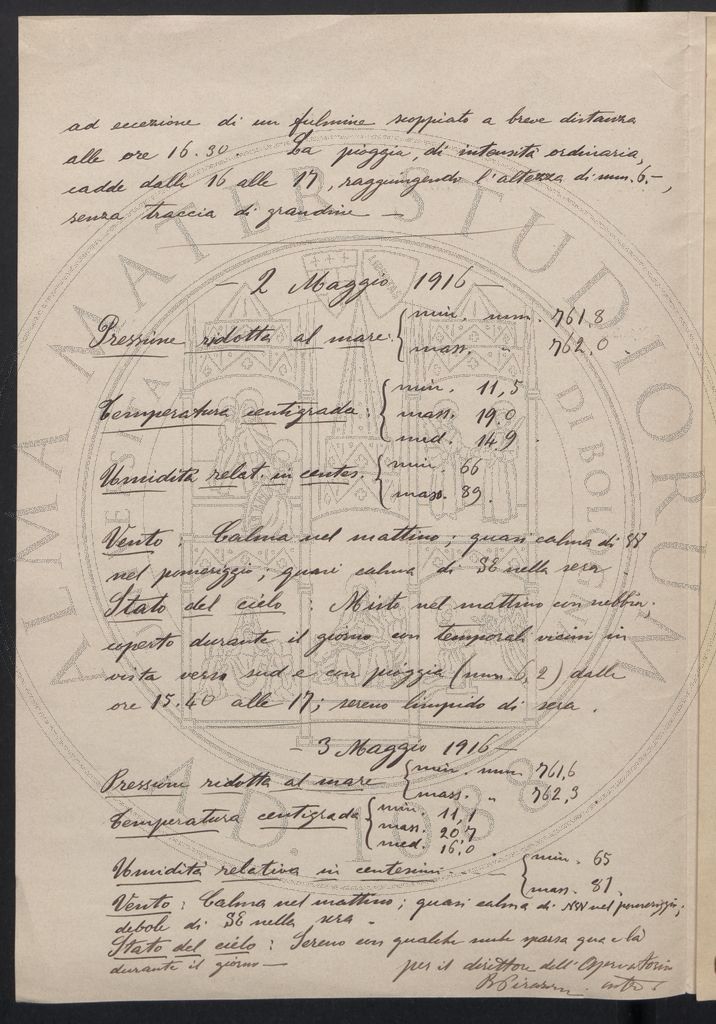 ad eccezione di un fulmine scoppiato a breve distanza
alle ore 16.30. La pioggia, di intensità ordinaria,
cadde dalle 16 alle 17, raggiungendo l'altezza di mm. 6.-,
senza traccia di grandine —
- 2 Maggio 1916 -
Pressione ridotta al mare { min. mm. 761.8
mass. " 762.0
Temperatura centigrada : { min. 11,5
mass. 19.0
med. 14.9
Umidità relat. in centes. { min. 66
mass. 89.
Vento : Calma nel mattino ; quasi calma di
nel pomeriggio ; quasi calma di SE nella sera
Stato del cielo : Misto nel mattino con nebbia ;
coperto durante il giorno con temporali vicini in
vista verso sud e con pioggia (mm. 6,2) dalle
ore 15.40 alle 17 ; sereno limpido di sera .
- 3 Maggio 1916 -
Pressione ridotta al mare { min. mm 761,6
mass. " 762,3
Temperatura centigrada { min. 11,1
mass. 20,7
med. 16,0
Umidità relativa in centesimi { min. 65
mass. 81.
Vento : Calma nel mattino ; quasi calma di NW nel pomeriggio ;
debole di SE nella sera -
Stato del cielo : Sereno con qualche nube sparsa qua e là
durante il giorno —
per il direttore dell'
ALMA MATER STUDIORUM
A.D. 1088
DI BOLOGNA